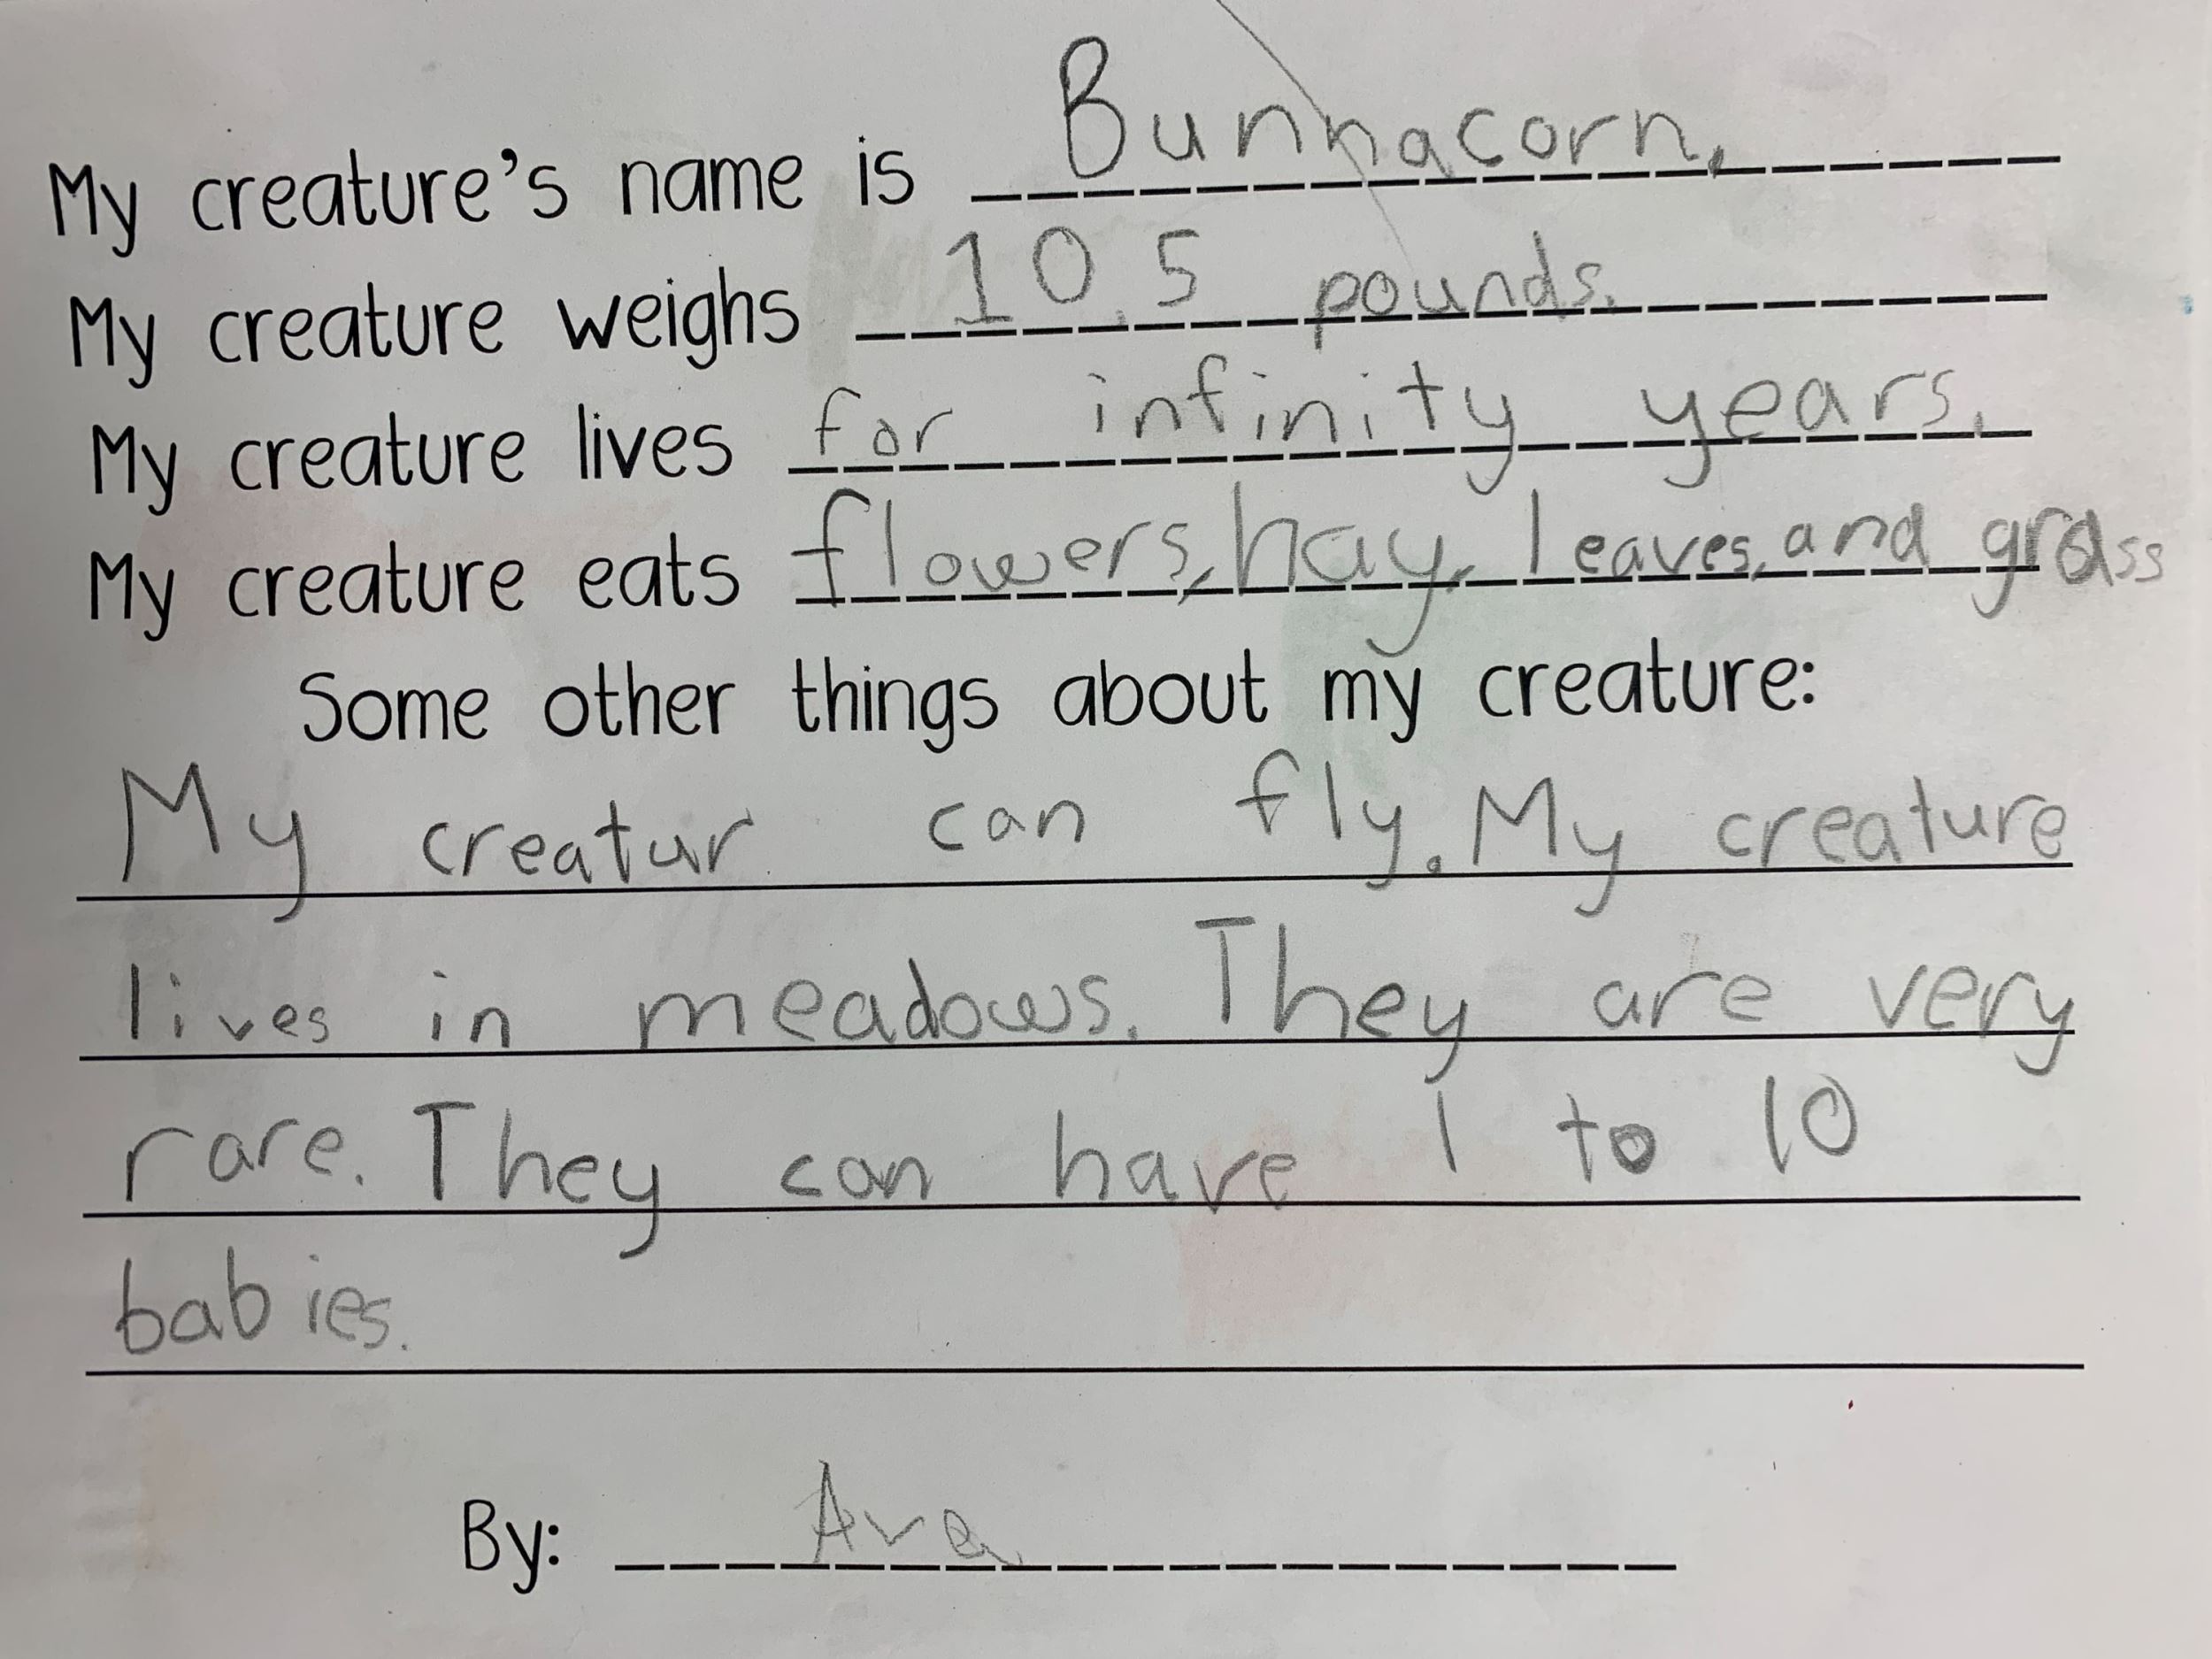 My creature's name is Bunnacorn.
My creature weighs 10.5 pounds.
My creature lives for infinity years.
My creature eats flowers, hay, leaves, and grass
Some other things about my creature:
My creatur can fly. My creature
lives in meadows. They are very
rare. They can have 1 to 10
babies.
By: Ava